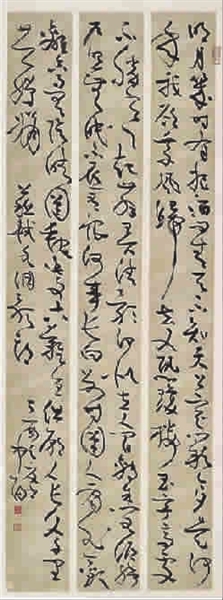 明月幾時有把酒問青天不知天上宮闕今夕是何
年我欲乘風歸去又恐瓊樓玉宇高處
不勝寒起舞弄清影何似在人間轉朱閣低綺
戶照無眠不應有恨何事長向別時圓人有悲歡
離合月有陰晴圓缺此事古難全但願人長久千里
共嬋娟 蘇軾水調歌頭